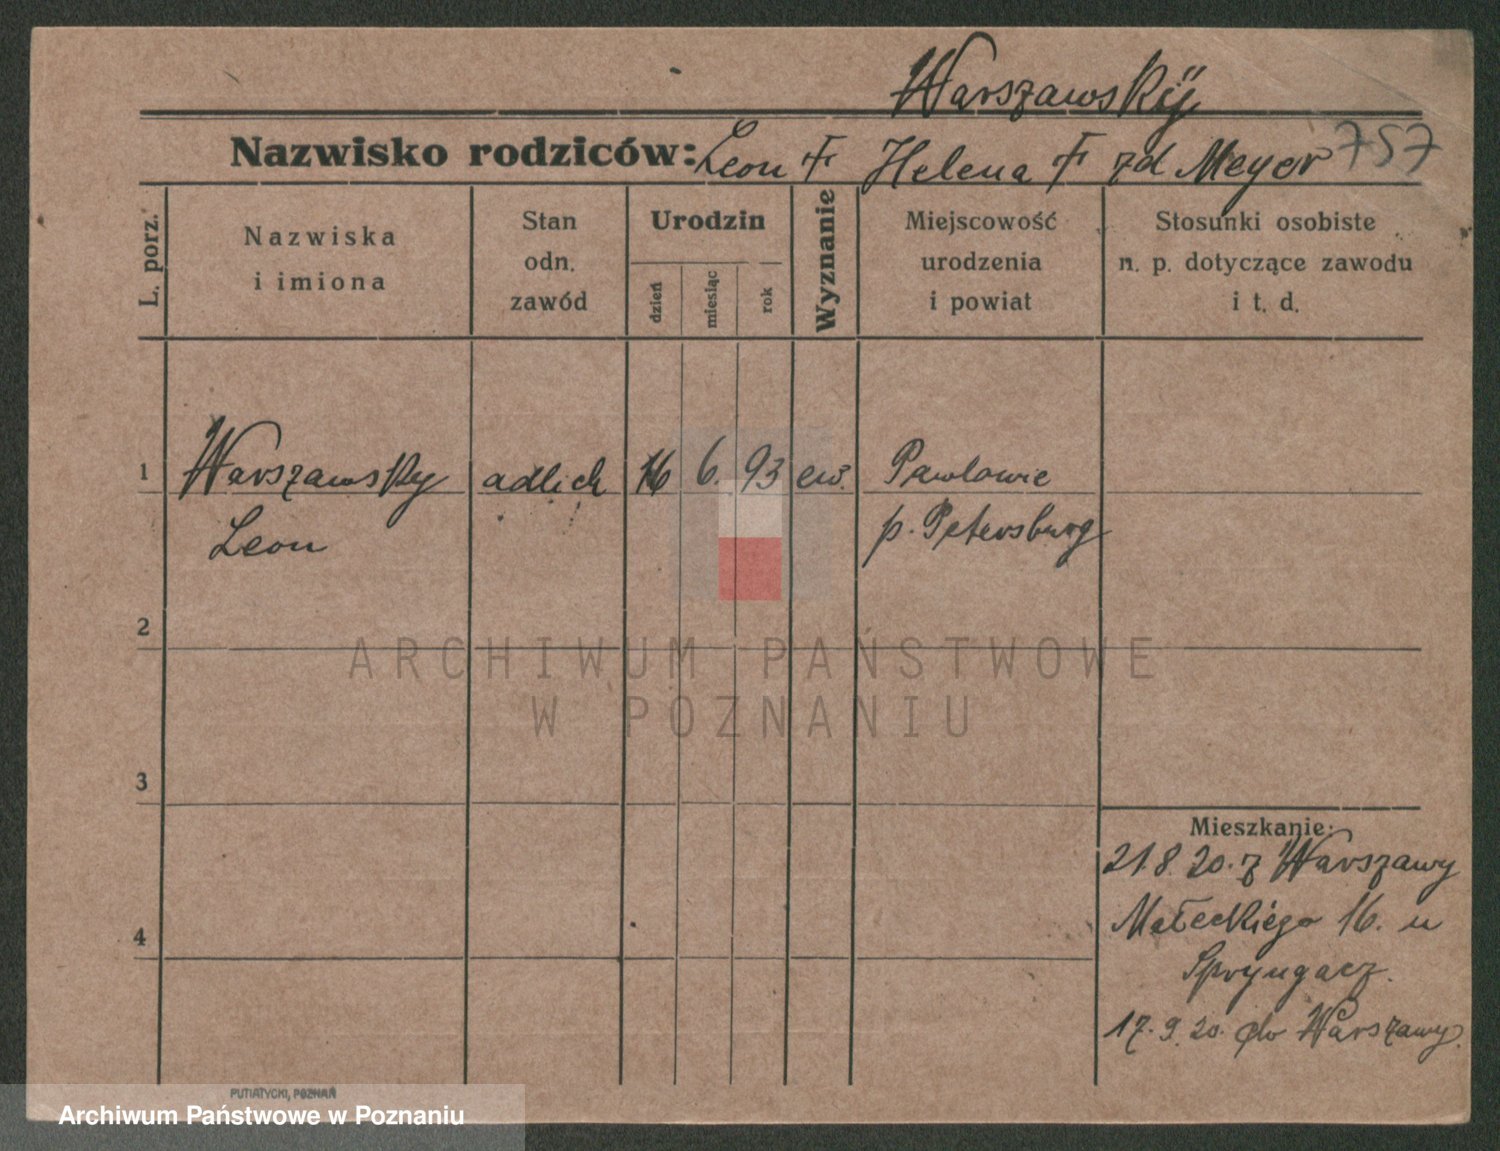 Warszawskij
Nazwisko rodziców: Leon † Helena † zd Meyer 757
L. porz.
Nazwiska
i imiona
Stan
odn.
zawód
Urodzin
dzień
miesiąc
rok
Wyznanie
Miejscowość
urodzenia
i powiat
Stosunki osobiste
n. p. dotyczące zawodu
i t. d.
1 Warszawsky adlich 16 6. 93 ew. Pawlowie
Leon p. Petersburg
2
3
4
Mieszkanie:
21.8.20. z Warszawy
Małeckiego 16. u
Spryngacz.
17.9.20. do Warszawy.
PUTIATYCKI, POZNAŃ
ARCHIWUM PAŃSTWOWE
W POZNANIU
Archiwum Państwowe w Poznaniu